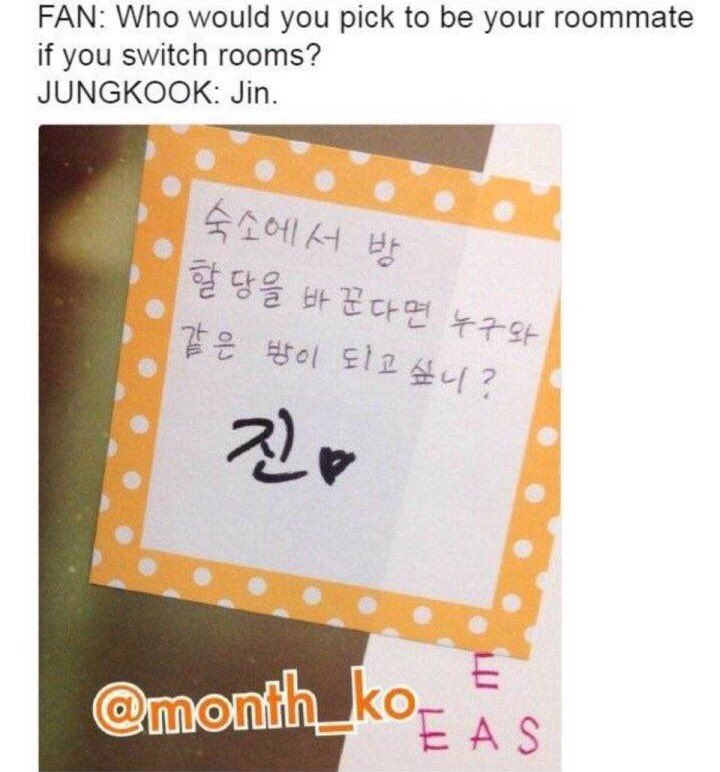 FAN: Who would you pick to be your roommate
if you switch rooms?
JUNGKOOK: Jin.
숙소에서 방
할당을 바꾼다면 누구와
같은 방이 되고 싶니?
진
@month_ko
E
E A S